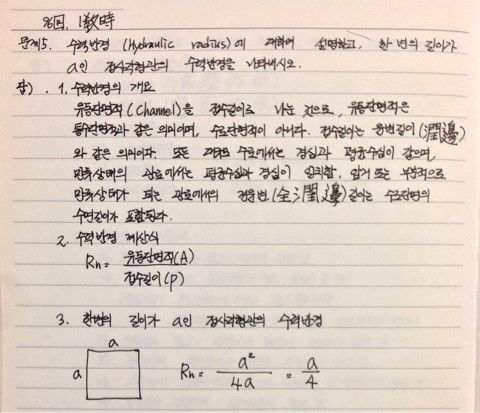 76回, 1敎時
문제5. 수력반경 (Hydraulic radius)에 대하여 설명하고, 한 변의 길이가
a인 정사각형관의 수력반경을 나타내시오.
답). 1. 수력반경의 개요
유동단면적(Channel)을 접수길이로 나눈 것으로, 유동단면적은
통수단면적과 같은 의미이며, 수로단면적이 아니다. 접수길이는 윤변길이(潤邊)
와 같은 의미이다. 또는 수로에서는 경심과 평균수심이 같으며,
만류상태의 관로에서는 평균수심과 경심이 일치함. 암거 또는 부분적으로
만류상태가 되는 관로에서의 전윤변(全潤邊)길이는 수로단면의
수면길이가 포함된다.
2. 수력반경 계산식
Rh = 유동단면적(A) / 접수길이(P)
3. 한변의 길이가 a인 정사각형관의 수력반경
a
a
Rh = a² / 4a = a / 4